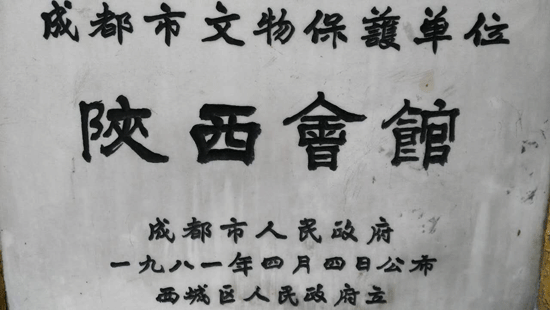 成都市文物保護单位
陝西會館
成都市人民政府
一九八一年四月四日公布
西城区人民政府立